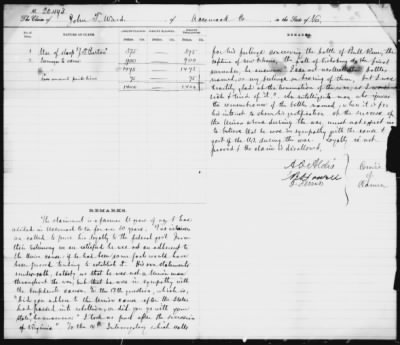 No. 20,493
The Claim of John T. Ward, of Accomack Co in the State of Va.
NATURE OF CLAIM
1 Use of sloop "J. B. Parton" 875 875
2 Damage to same 900 900
1775 1775
75 75
REMARKS.
The claimant is a farmer 60 years of age & has
resided in Accomack Co for 20 years.
called to prove his loyalty to the federal govt. From
their testimony we are satisfied he was not an adherent to
the Union cause; if he had been some facts would have
been proved tending to establish it. His own statements
under oath, satisfy us that he was not a Union man
throughout the war, but that he was in sympathy with
the Confederate cause. To the 13th question, which is,
"Did you adhere to the Union cause after the States
had passed into rebellion, or did you go with your
State", he answers "I took no part after the secession
of Virginia". To the 40th Interrogatory which calls
for his feelings concerning the battle of Bull Run, the
capture of New Orleans, the fall of Vicksburg & the final
surrender, he answers "I can not recollect the battles
named, or my feelings on hearing of them, but I was
heartily glad at the termination of the war, as I was
sick & tired of it". An intelligent man who ignores
the remembrance of the battles named, when it is for
his interest to show his gratification at the success of
the Union arms during the war, must not expect us
to believe that he was in sympathy with the cause &
govt of the U.S. during the war. Loyalty is not
proved & the claim is disallowed.
A. O. Aldis
J. B. Howell
O. Ferriss
Comrs
of
Claims